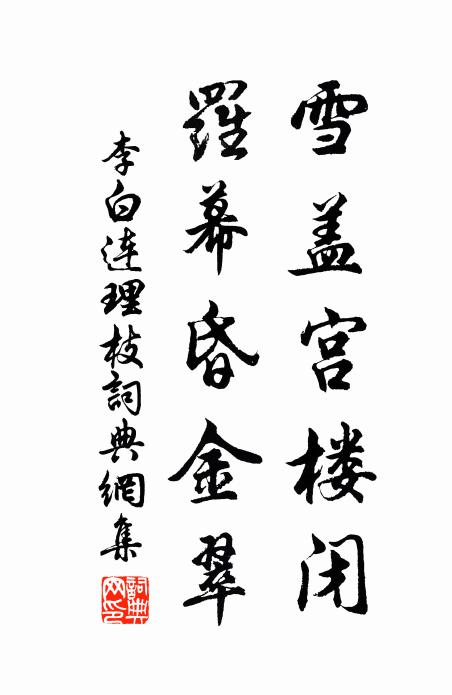 雪盖宫楼闭
羅幕昏金翠
李白连理枝詞典網集
詞典网印